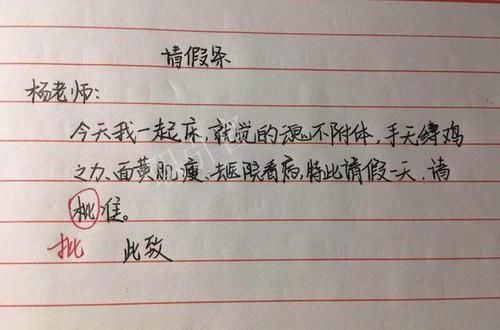 请假条
杨老师:
今天我一起床,就觉的魂不附体,手无缚鸡
之力、面黄肌瘦、去医院看病,特此请假一天,请
枇准。
批 此致